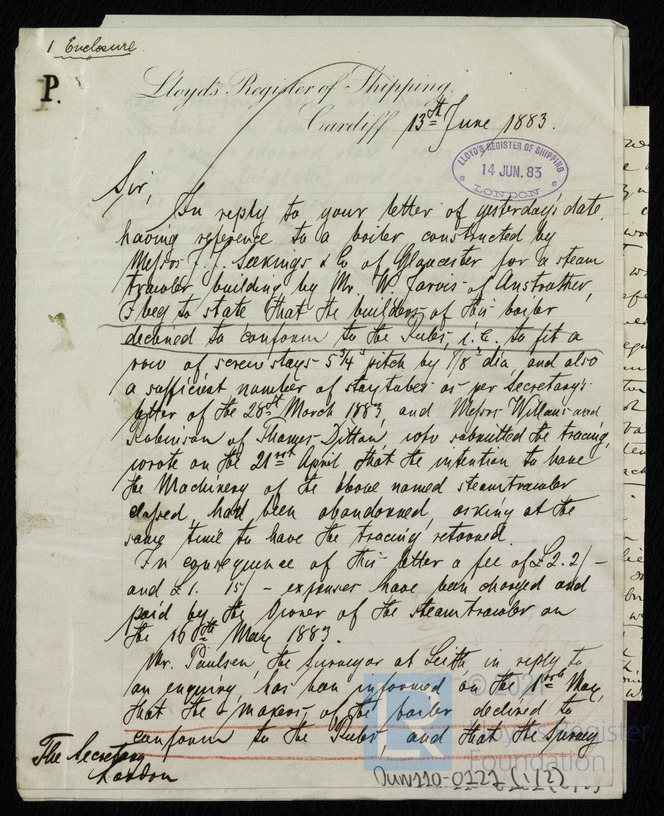 1 Enclosure.
P.
Lloyd's Register of Shipping,
Cardiff 13th June 1883.
LLOYD'S REGISTER OF SHIPPING
14 JUN. 83
LONDON
Sir,
In reply to your letter of yesterday's date,
having reference to a boiler constructed by
Messrs J. J. Seekings & Co of Gloucester for a steam
trawler building by Mr. W. Jarvis of Anstruther,
I beg to state that the builders of this boiler
declined to conform to the Rules, i.e. to fit a
row of screw stays 5 3/4" pitch by 7/8" dia, and also
a sufficient number of stay tubes as per Secretary's
letter of the 28th March 1883, and Messrs Willans and
Robinson of Thames Ditton, who submitted the tracing,
wrote on the 21st April, that the intention to have
the Machinery of the above named steamtrawler
classed, had been abandonned, asking at the
same time to have the tracing returned.
In consequence of this letter a fee of £2.2/-
and £1. 15/- expenses have been charged and
paid by the Owner of the steamtrawler on
the 16th May 1883.
Mr. Paulsen, the Surveyor at Leith in reply to
an enquiry, has been informed on the May,
that the makers of the boiler declined to
conform to the Rules, and that the Survey
The Secretary
London
JUN110-0121 (1/2)
© 2021
Lloyd's Register
Foundation